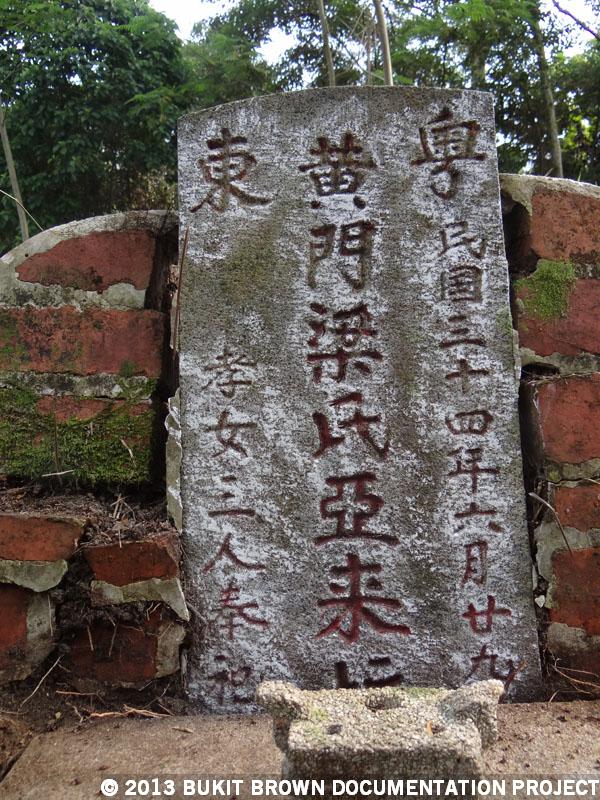 粤東
民国三十四年六月廿九
黄門梁氏亞来
孝女三人奉祀
© 2013 BUKIT BROWN DOCUMENTATION PROJECT